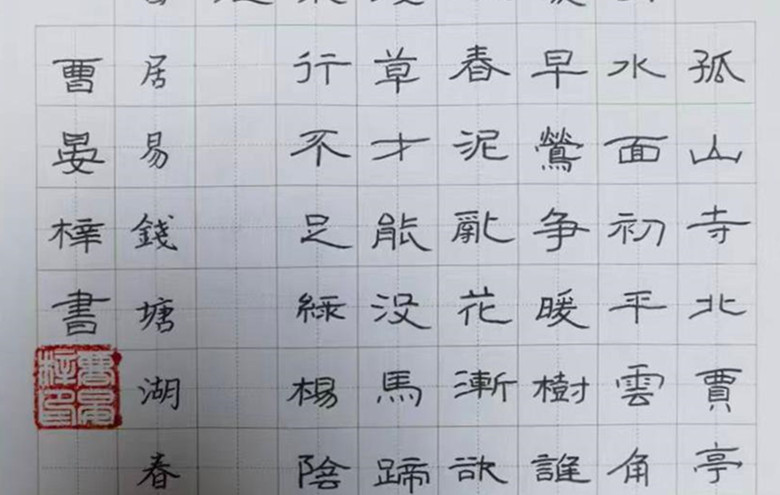 孤山寺北賈亭
水面初平雲角
早鶯争暖樹誰
春泥亂花漸欲
草才能没馬蹄
行不足綠楊陰
居易錢塘湖春
曹晏梓書
曹晏梓印